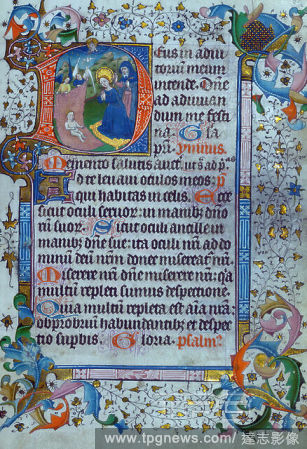 Deus in adiuto
toriū meum
intende. Dñe
ad adiuuan
dum me festi
na. Gla
pr̄i. Ymnus.
Memento salutis auct. ut s̄ ad p̄as
Ad te leuaui oculos meos: q̄
qui habitas in celis. Ecce
sicut oculi seruor: in manib; dño
rū suor. Sicut oculi ancille in
manib; dñe sue: ita oculi nr̄i ad do
minū deū nr̄m donec misereat̄ nr̄i.
Miserere nr̄i dñe miserere nr̄i: q̄a
multū repleti sumus despectione.
Quia multū repleta est aīa nr̄a:
obprobriū habundantib; et despec
tio supbis. Gloria. psalm̄
www.tpgnews.com/達志影像